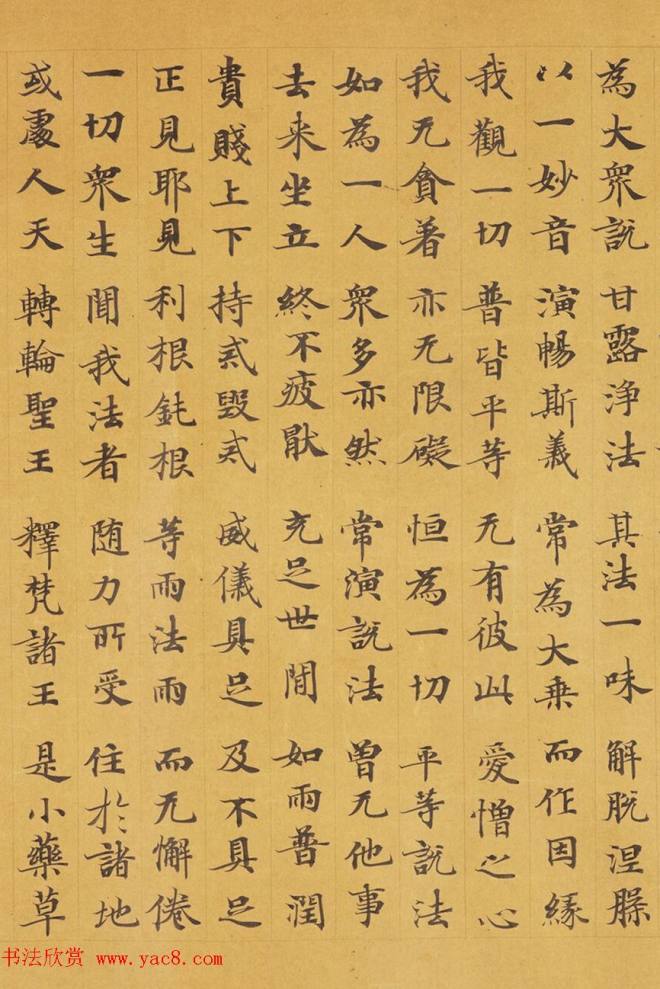 為大衆說甘露淨法其法一味解脫涅槃
以一妙音演暢斯義常為大乗而作因緣
我觀一切普皆平等无有彼此愛憎之心
我无貪著亦无限礙恒為一切平等說法
如為一人衆多亦然常演說法曾无他事
去来坐立終不疲猒充足世間如雨普潤
貴賤上下持戒毀戒威儀具足及不具足
正見耶見利根鈍根等雨法雨而无懈倦
一切衆生聞我法者随力所受住於諸地
或處人天轉輪聖王釋梵諸王是小藥草
书法欣赏 www.yac8.com